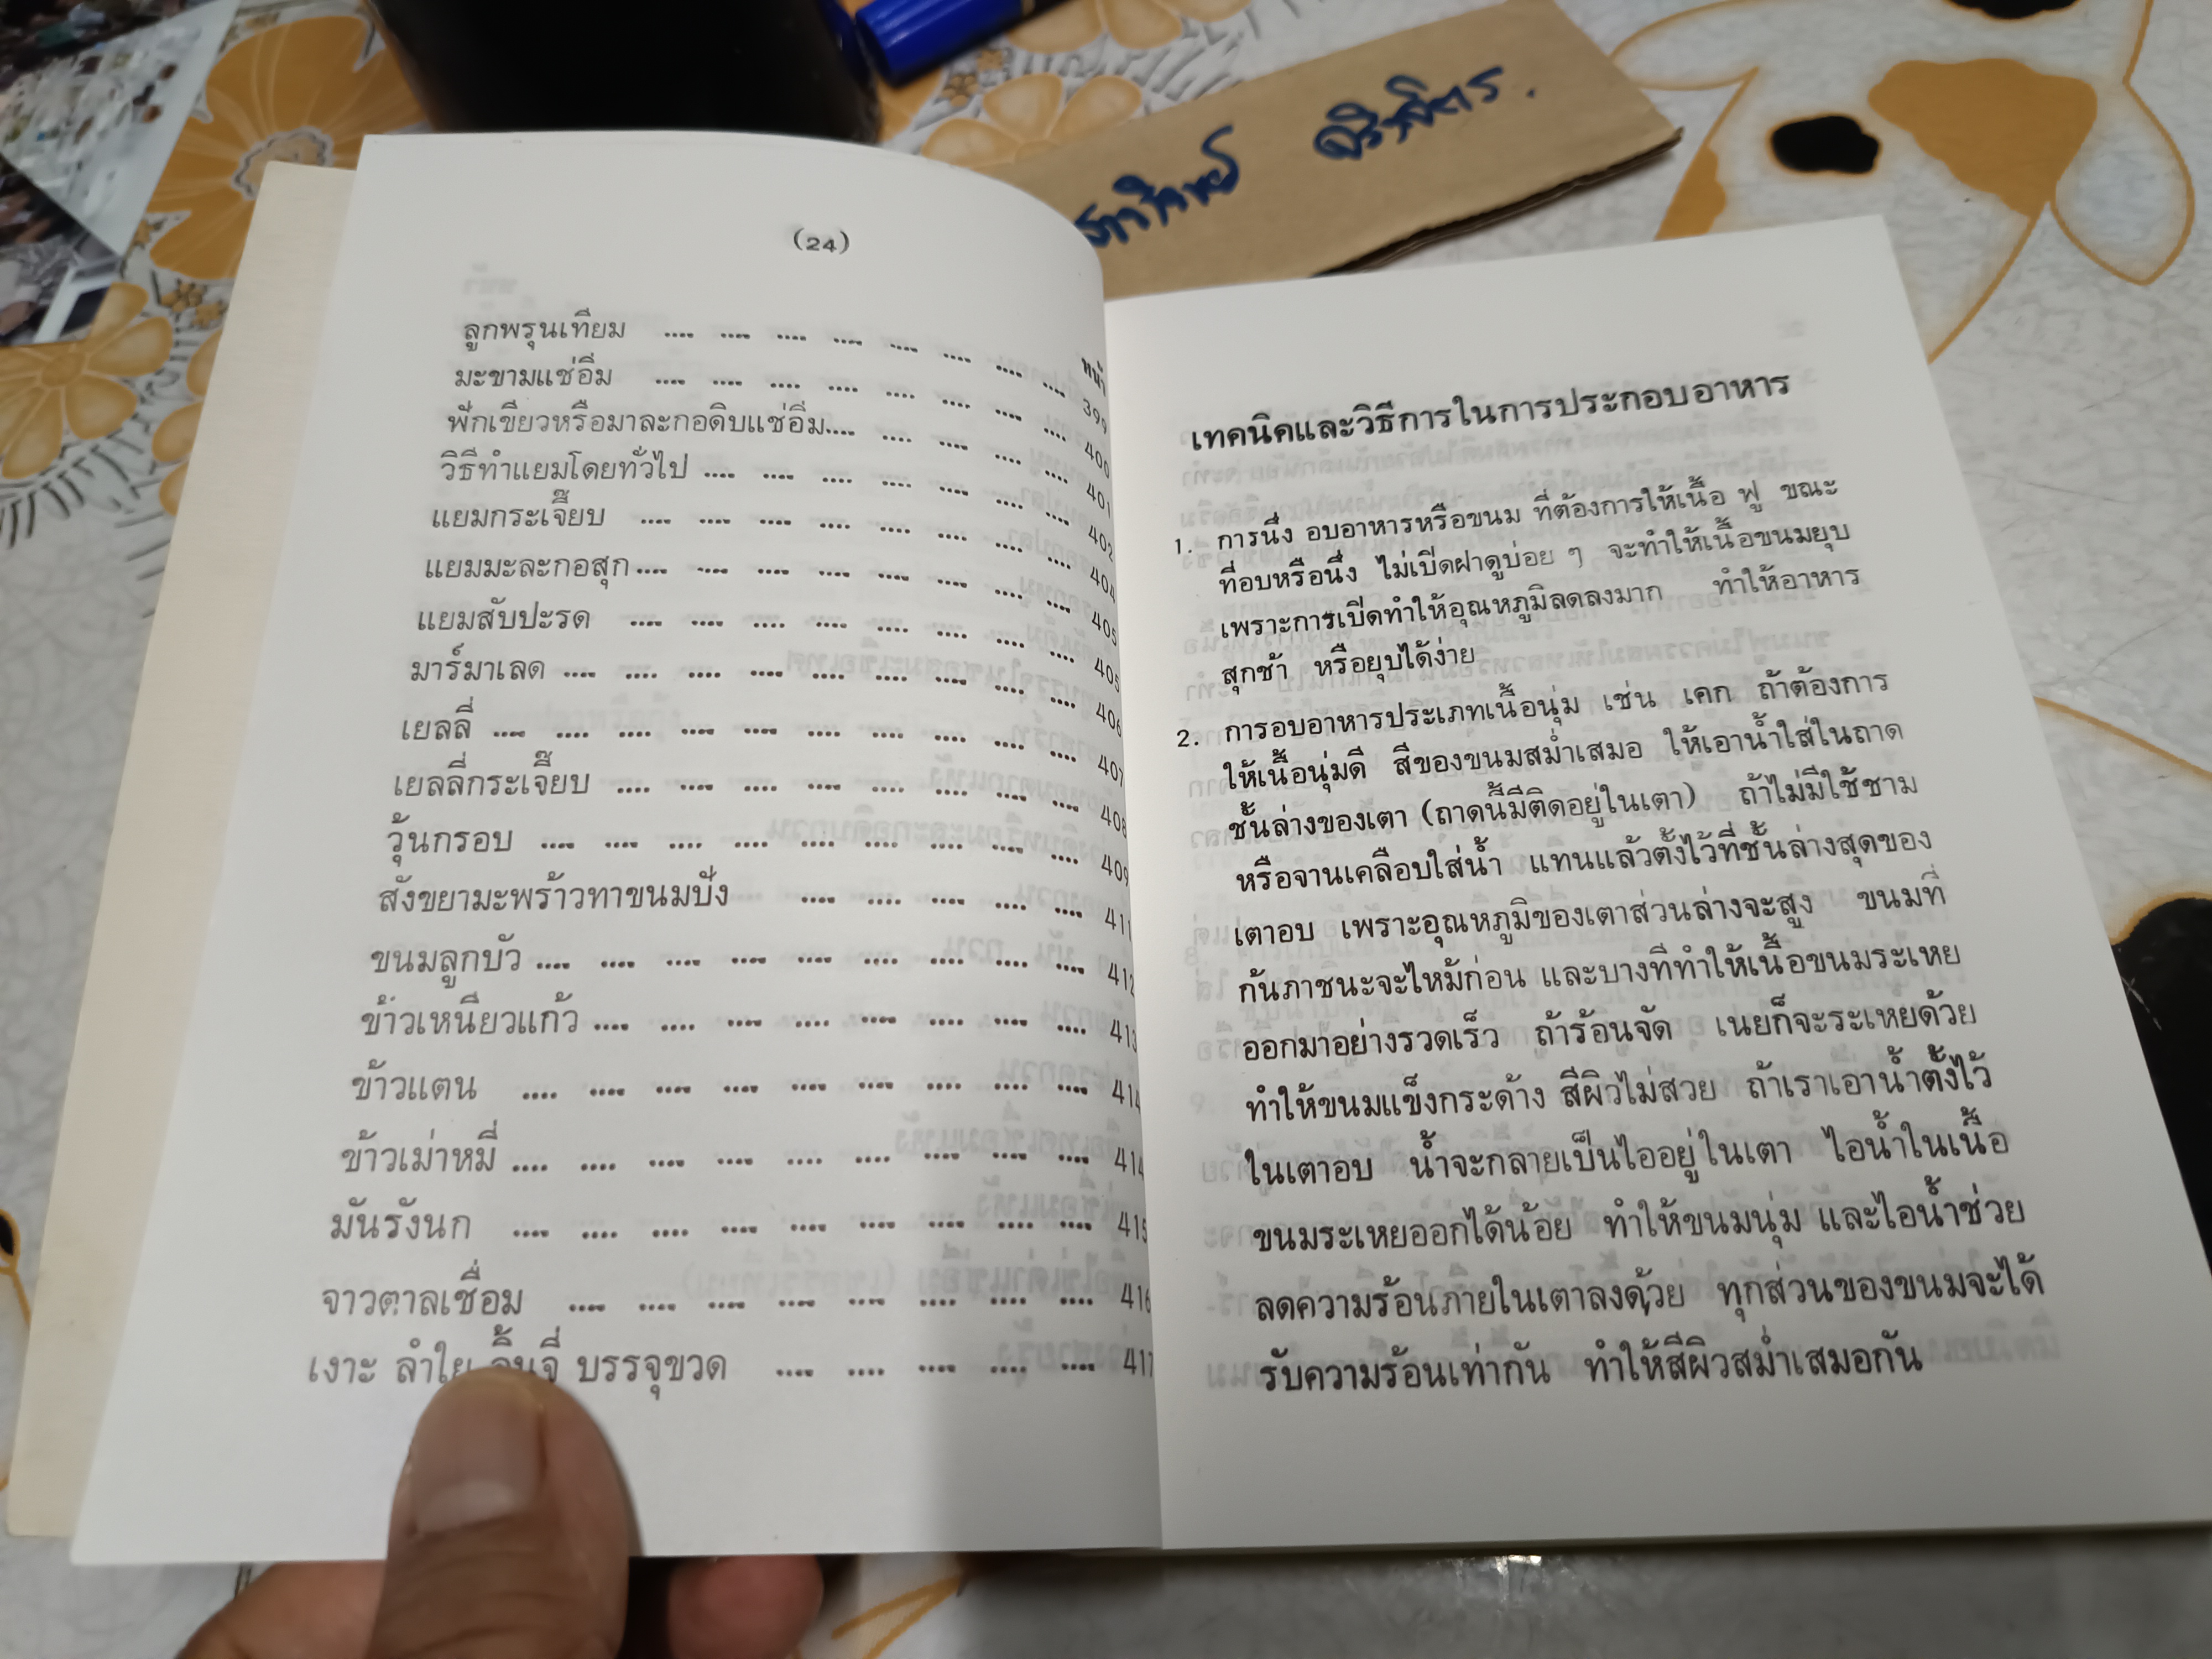 (24)
หน้า
ลูกพรุนเทียม .... .... .... .... .... .... .... .... 399
มะขามแช่อิ่ม .... .... .... .... .... .... .... .... 400
ฟักเขียวหรือมาละกอดิบแช่อิ่ม.... .... .... .... .... 401
วิธีทำแยมโดยทั่วไป .... .... .... .... .... .... .... 402
แยมกระเจี๊ยบ .... .... .... .... .... .... .... .... 404
แยมมะละกอสุก .... .... .... .... .... .... .... .... 405
แยมสับปะรด .... .... .... .... .... .... .... .... 405
มาร์มาเลด .... .... .... .... .... .... .... .... .... 406
เยลลี่ .... .... .... .... .... .... .... .... .... .... 407
เยลลี่กระเจี๊ยบ .... .... .... .... .... .... .... .... 408
วุ้นกรอบ .... .... .... .... .... .... .... .... .... 409
สังขยามะพร้าวทาขนมปัง .... .... .... .... .... 411
ขนมลูกบัว .... .... .... .... .... .... .... .... .... 412
ข้าวเหนียวแก้ว .... .... .... .... .... .... .... .... 413
ข้าวแตน .... .... .... .... .... .... .... .... .... 414
ข้าวเม่าหมี่ .... .... .... .... .... .... .... .... .... 414
มันรังนก .... .... .... .... .... .... .... .... .... 415
จาวตาลเชื่อม .... .... .... .... .... .... .... .... 416
เงาะ ลำใย ลิ้นจี่ บรรจุขวด .... .... .... .... .... 417
เทคนิคและวิธีการในการประกอบอาหาร
1. การนึ่ง อบอาหารหรือขนม ที่ต้องการให้เนื้อ ฟู ขณะ
ที่อบหรือนึ่ง ไม่เปิดฝาดูบ่อย ๆ จะทำให้เนื้อขนมยุบ
เพราะการเปิดทำให้อุณหภูมิลดลงมาก ทำให้อาหาร
สุกช้า หรือยุบได้ง่าย
2. การอบอาหารประเภทเนื้อนุ่ม เช่น เคก ถ้าต้องการ
ให้เนื้อนุ่มดี สีของขนมสม่ำเสมอ ให้เอาน้ำใส่ในถาด
ชั้นล่างของเตา (ถาดนี้มีติดอยู่ในเตา) ถ้าไม่มีใช้ชาม
หรือจานเคลือบใส่น้ำ แทนแล้วตั้งไว้ที่ชั้นล่างสุดของ
เตาอบ เพราะอุณหภูมิของเตาส่วนล่างจะสูง ขนมที่
ก้นภาชนะจะไหม้ก่อน และบางทีทำให้เนื้อขนมระเหย
ออกมาอย่างรวดเร็ว ถ้าร้อนจัด เนยก็จะระเหยด้วย
ทำให้ขนมแข็งกระด้าง สีผิวไม่สวย ถ้าเราเอาน้ำตั้งไว้
ในเตาอบ น้ำจะกลายเป็นไออยู่ในเตา ไอน้ำในเนื้อ
ขนมระเหยออกได้น้อย ทำให้ขนมนุ่ม และไอน้ำช่วย
ลดความร้อนภายในเตาลงด้วย ทุกส่วนของขนมจะได้
รับความร้อนเท่ากัน ทำให้สีผิวสม่ำเสมอกัน